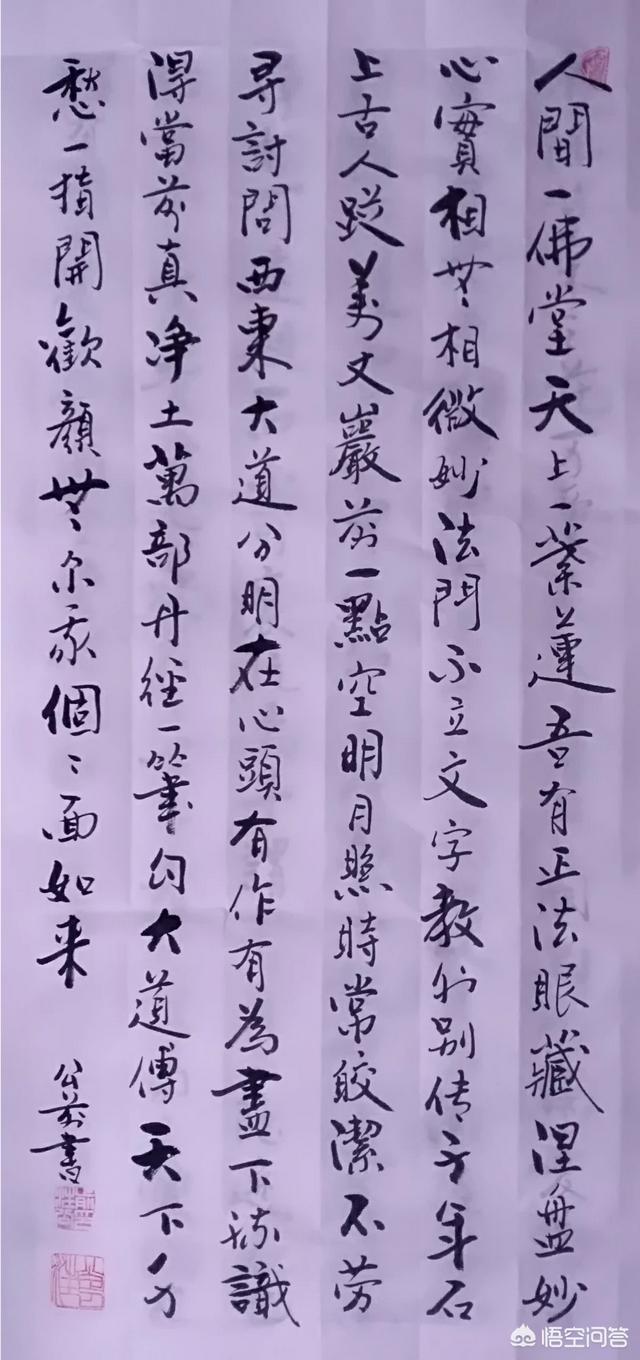 人間一佛堂天上一葉蓮吾有正法眼藏涅盤妙
心實相無相微妙法門不立文字教外别传千年石
上古人踪萬丈巖前一點空明月照時常皎潔不劳
尋討問西東大道分明在心頭有作有為盡下流識
得當前真净土萬部丹經一筆勾大道傳天下
愁一指開歡顏無尔我個々面如来
公前書
悟空问答